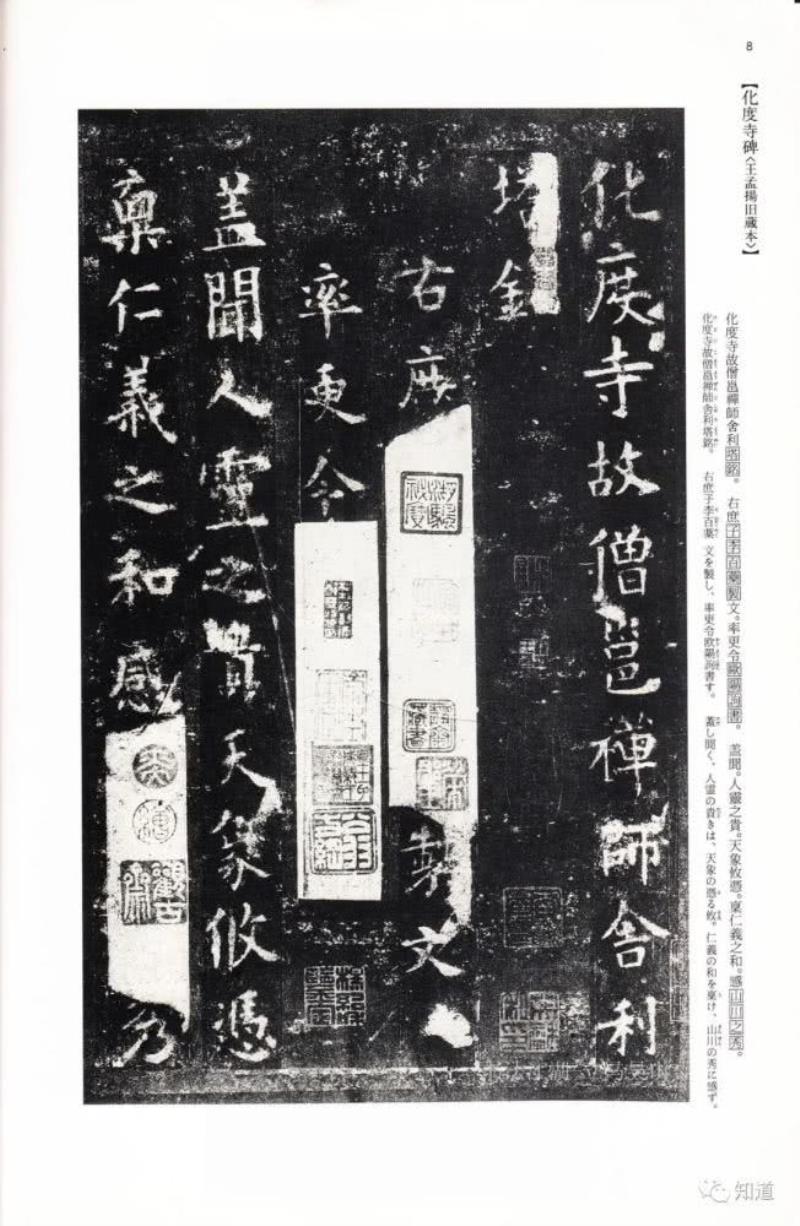 8
【化度寺碑〈王孟揚旧蔵本〉】
化度寺故僧邕禪師舍利塔銘。 右庶子李百藥製文。率更令歐陽詢書。 蓋聞。人靈之貴。天象攸憑。稟仁義之和。感山川之秀。
化度寺故僧邕禅師舎利塔銘。 右庶子李百薬 文を製し、率更令欧陽詢書す。 蓋し聞く、人霊の貴きは、天象の憑る攸。仁義の和を稟け、山川の秀に感ず。
化度寺故僧邕禪師舍利
塔銘
右庶 製文
率更令
蓋聞人靈之貴天象攸憑
稟仁義之和感
觀古齋
知道